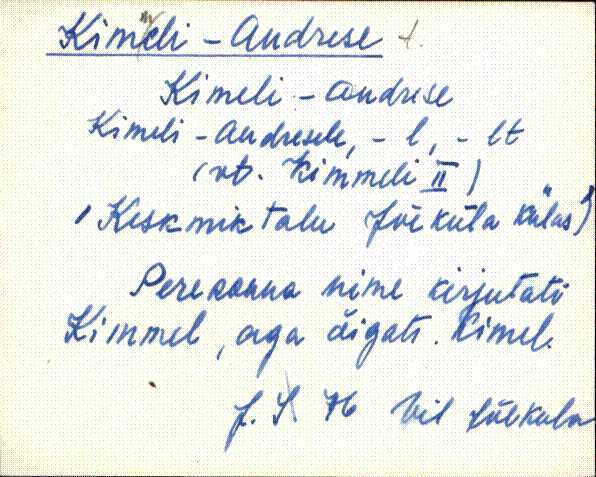 Kimeli - Andrese t.
Kimeli - Andrese
Kimeli - Andresele, - l, - lt
(vt. Kimmeli II)
(Keskmik talu Jõeküla külas)
Perekonna nime kirjutati
Kimmel, aga õigati. Kimel.
J. S. 76 Vil Jõeküla